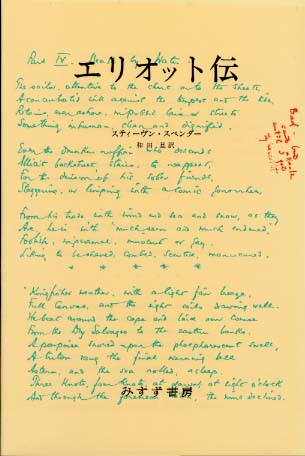 Part IV. Death by Water.
エリオット伝
The sailor, attentive to the chart or to the sheets,
A concentrated will against the tempest and the tide,
Retains, even ashore, in public bars or streets
Something inhuman, clean and dignified.
スティーヴン・スペンダー
和田 旦訳
Bad but
Even the drunken ruffian who descends
Illicit backstreet stairs, to reappear,
For the derision of his sober friends,
Staggering, or limping with a comic gonorrhea,
From his trade with wind and sea and snow, as they
Are, he is, with "much seen and much endured,"
Foolish, impersonal, innocent or gay,
Liking to be shaved, combed, scented, manicured.
* * * *
"Kingfisher weather, with a light fair breeze,
Full canvas, and the eight sails drawing well.
We beat around the cape and laid our course
From the Dry Salvages to the eastern banks.
A porpoise snored upon the phosphorescent swell,
A triton rang the final warning bell
Astern, and the sea rolled, asleep.
Three knots, four knots, at dawn; at eight o'clock
And through the forenoon, the wind declined.
みすず書房